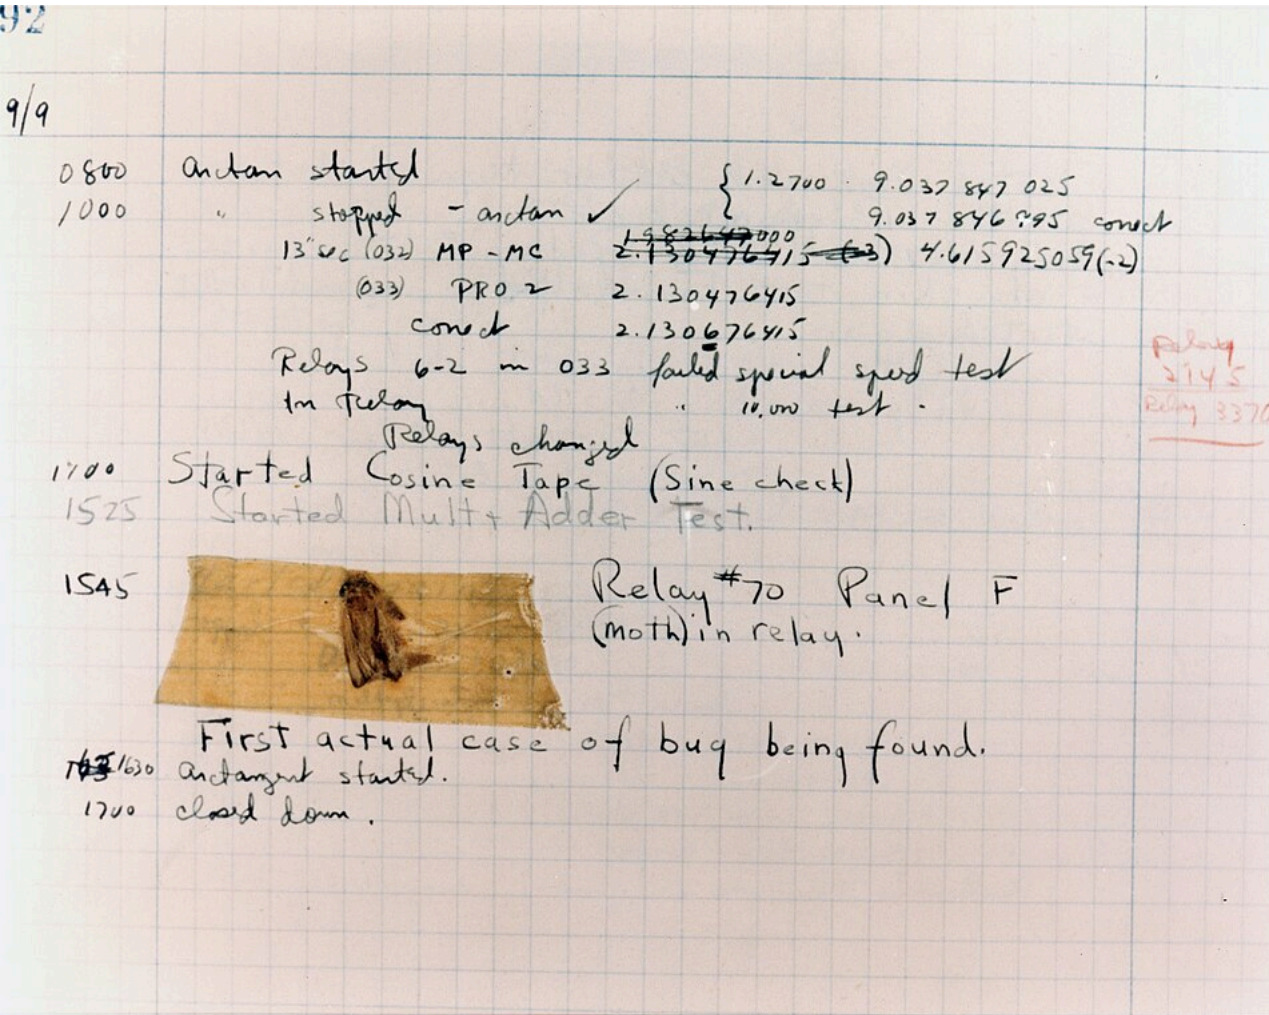 92
9/9
0800 Arctan started { 1.2700 9.037 847 025
1000 " stopped - arctan ✓ 9.037 846 95 correct
13"sec (032) MP - MC 1.982647000 2.130476415 (-3) 4.615925059(-2)
(033) PRO 2 2.130476415
correct 2.130676415
Relays 6-2 in 033 failed special speed test
In Relay " 10,000 test .
Relay
2145
Relay 3370
Relays changed
1100 Started Cosine Tape (Sine check)
1525 Started Mult + Adder Test.
1545 Relay #70 Panel F
(moth) in relay.
First actual case of bug being found.
1630 Arctangent started.
1700 closed down.